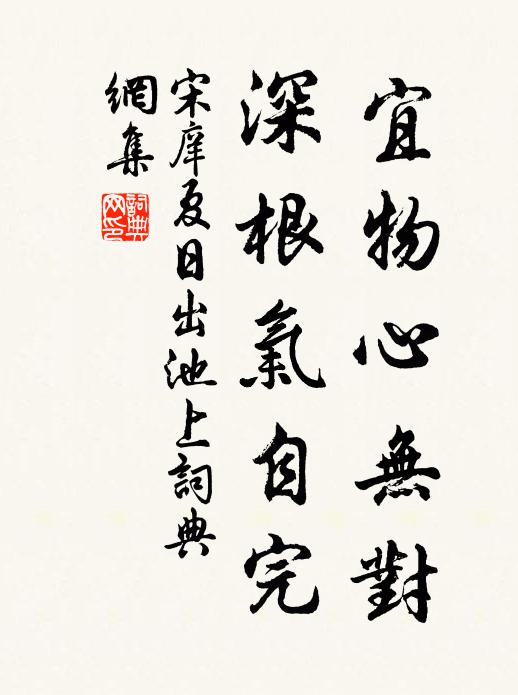 宜物心無對
深根氣自完
宋庠夏日出池上詞典
網集
詞典
网印